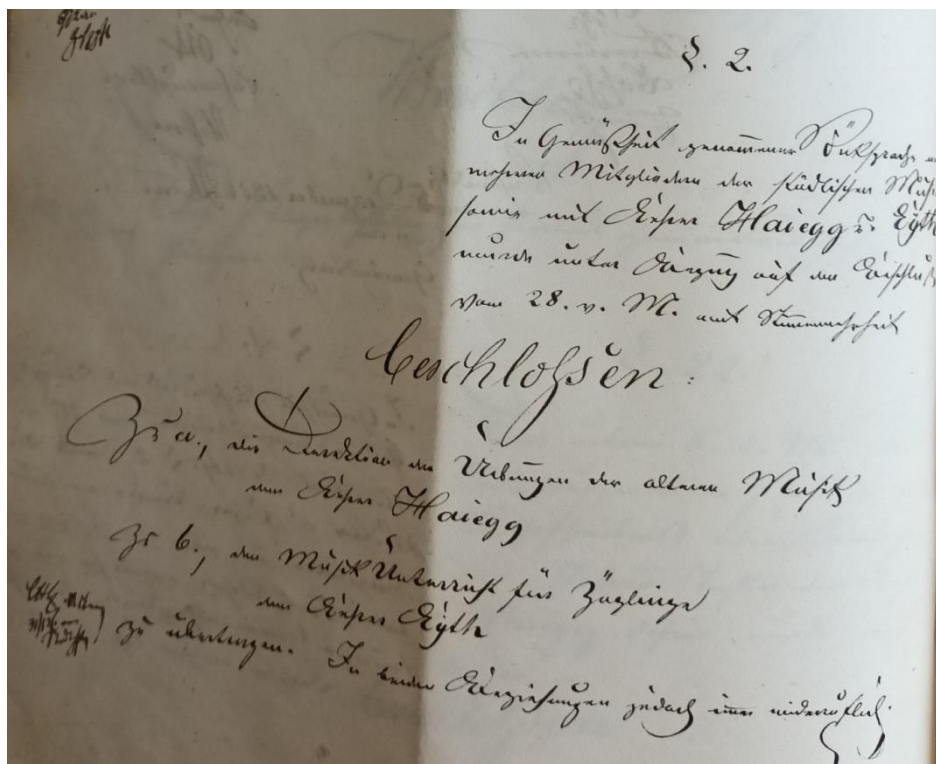 §. 2.
In Gemäßheit genommener Rüksprache
mehreren Mitgliedern der städtischen Musik
sowie mit Lehrer Haiegg u. Eÿth
wurde unter Bezug auf den Beschluß
vom 28. v. M. mit Stimmenmehrheit
beschloßen:
Zu a., die Direktion der Uebungen der älteren Musik
dem Lehrer Haiegg
Zu b., den Musik Unterricht für Zöglinge
dem Lehrer Eÿth
zu übertragen. In beiden Beziehungen jedoch immer widerruflich.